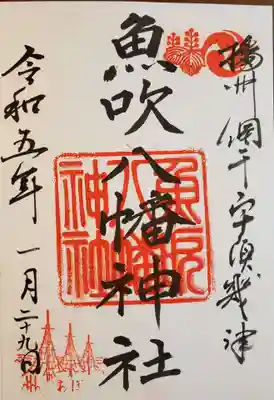 播州 網干 宇須幾津
魚吹八幡神社
令和五年 一月二十九日
魚吹
八幡
神社